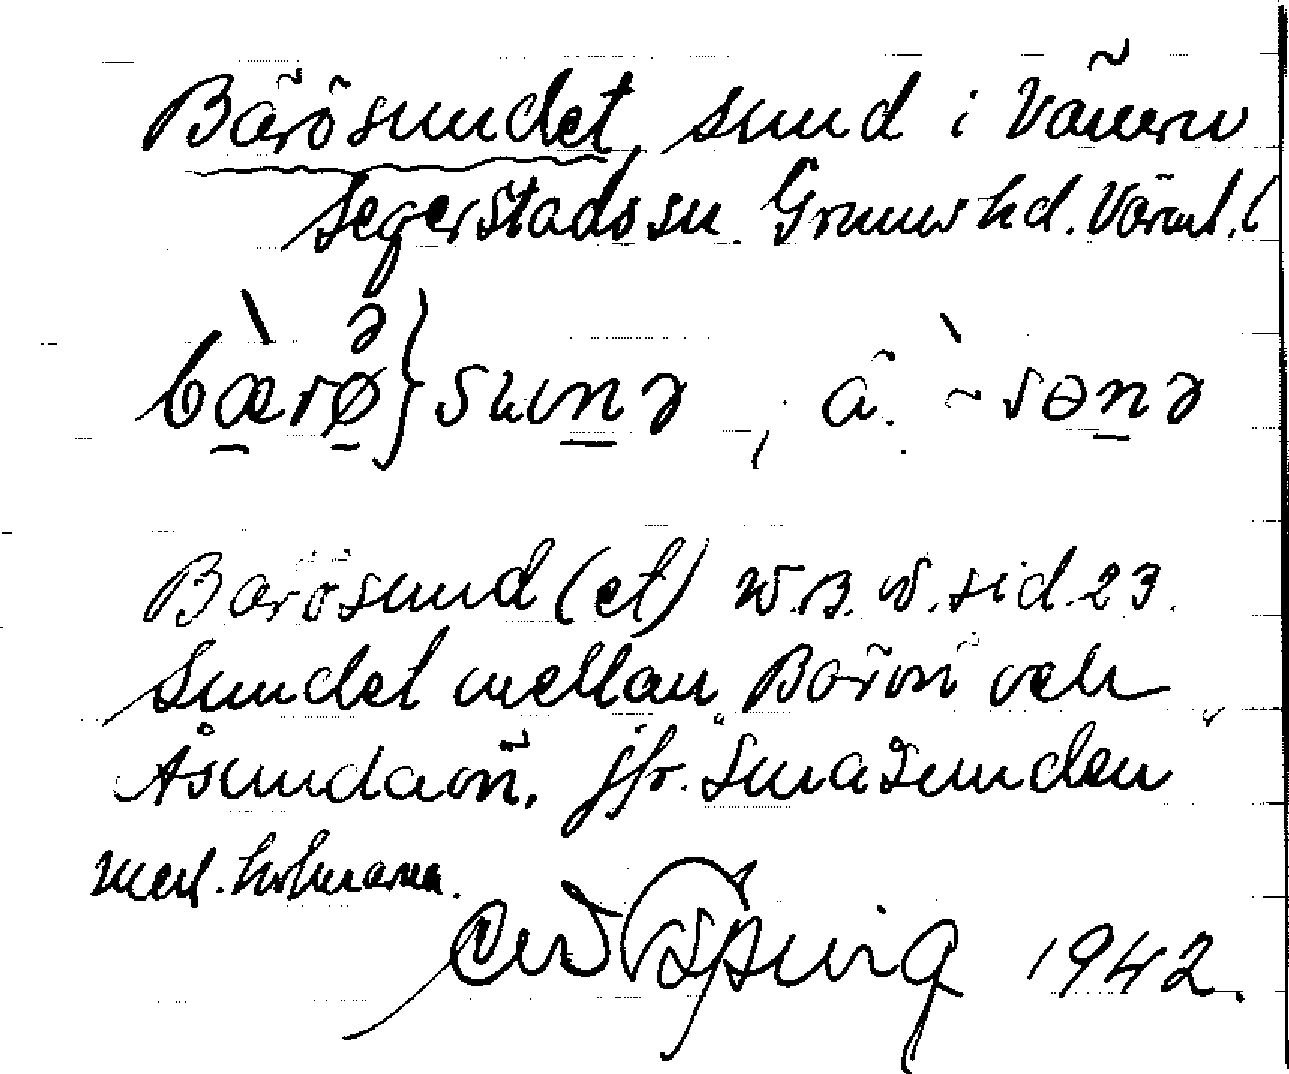 Bärösundet, sund i Vänern
Segerstads sn. Grums hd. Värml. l
bærø}sunə, ä. ~ sɵnə
Bärösund (et) W.B.W. sid. 23.
Sundet mellan Bärön och
Åsundaön. jfr. "Småsunden"
mell. holmarna.
1942.